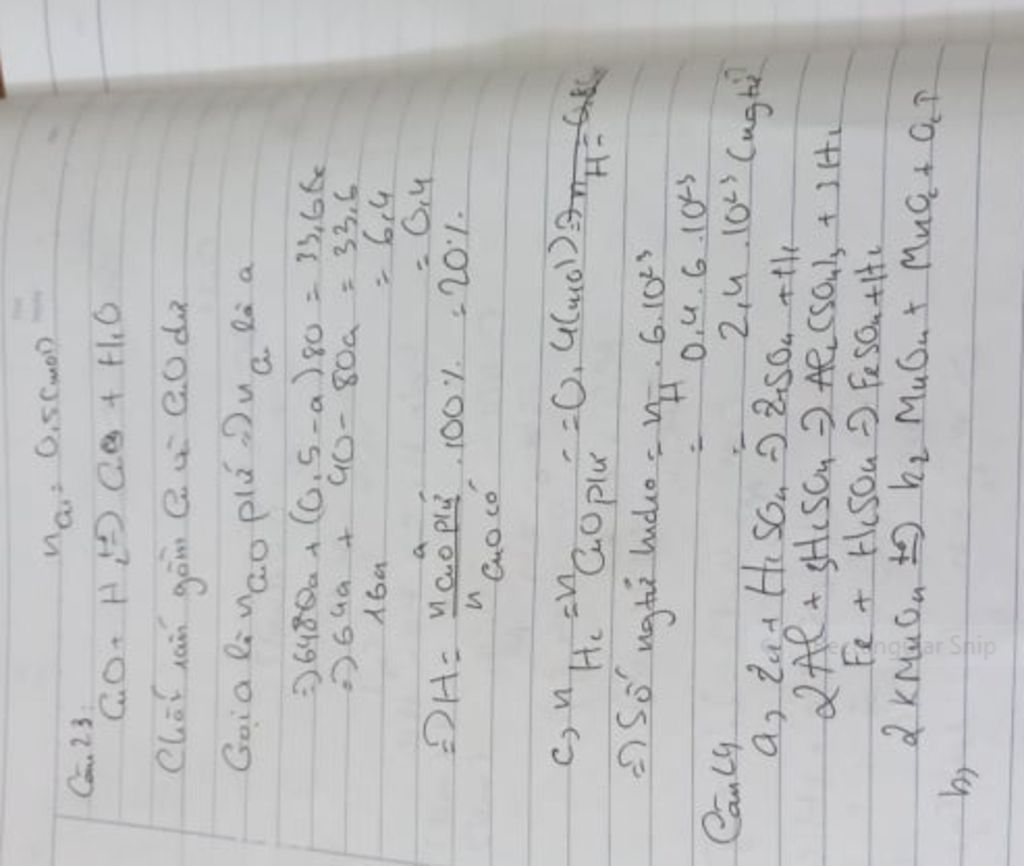 n CuO = 0,5 (mol)
Câu 23:
CuO + H₂ t°=> Cu + H₂O
Chất rắn gồm Cu và CuO dư
Gọi a là n CuO pứ => n Cu là a
=> 64a + (0,5 - a) 80 = 33,6
=> 64a + 40 - 80a = 33,6
16a = 6,4
a = 0,4
=> H = n CuO pứ / n CuO có . 100% = 20%.
c, n H₂ = n CuO pứ = 0,4 (mol) => n H =
=> Số nghtử hidro = n H . 6.10²³
= 0,4 . 6 . 10²³
= 2,4 . 10²³ (nghtử)
Câu 24
a, Zn + H₂SO₄ => ZnSO₄ + H₂
2Al + 3H₂SO₄ => Al₂(SO₄)₃ + 3H₂
Fe + H₂SO₄ => FeSO₄ + H₂
2KMnO₄ t°=> K₂MnO₄ + MnO₂ + O₂↑
b,
Rectangular Snip